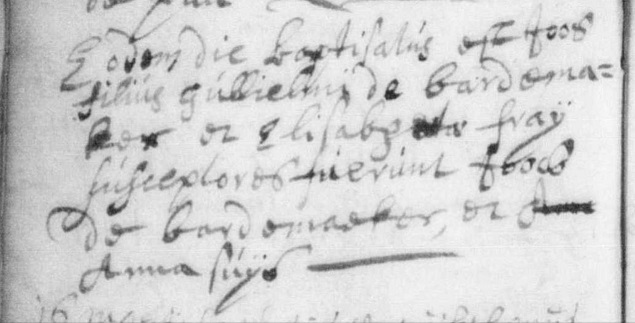 Eodem die baptisatus est Joos
filius gullielmij de bardema=
ker et Elisabetae fraÿ
susceptores fuerunt Joos
de bardemaeker, et
Anna suijs
16